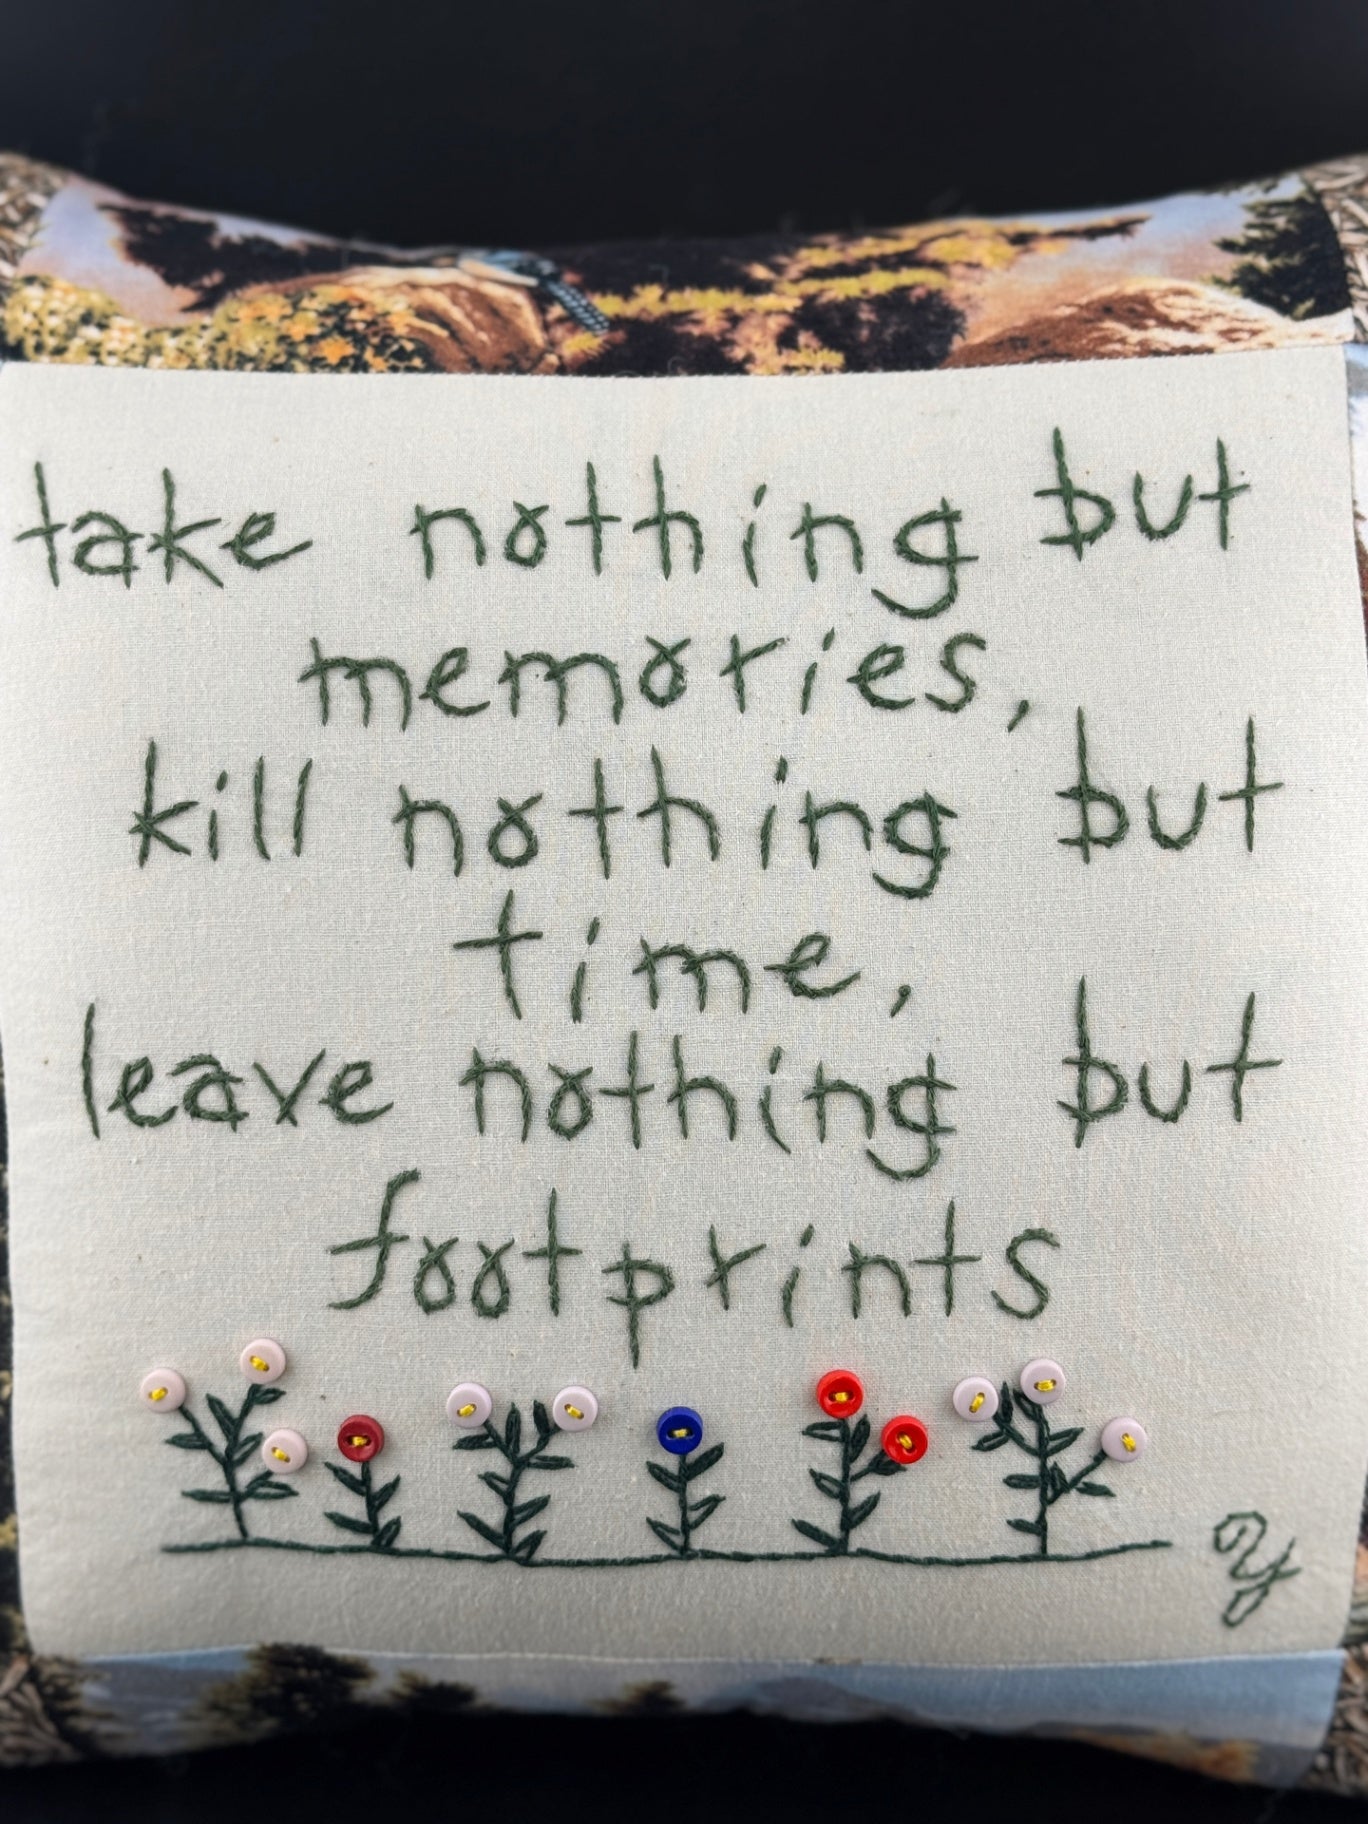 take nothing but
memories,
kill nothing but
time,
leave nothing but
footprints
y